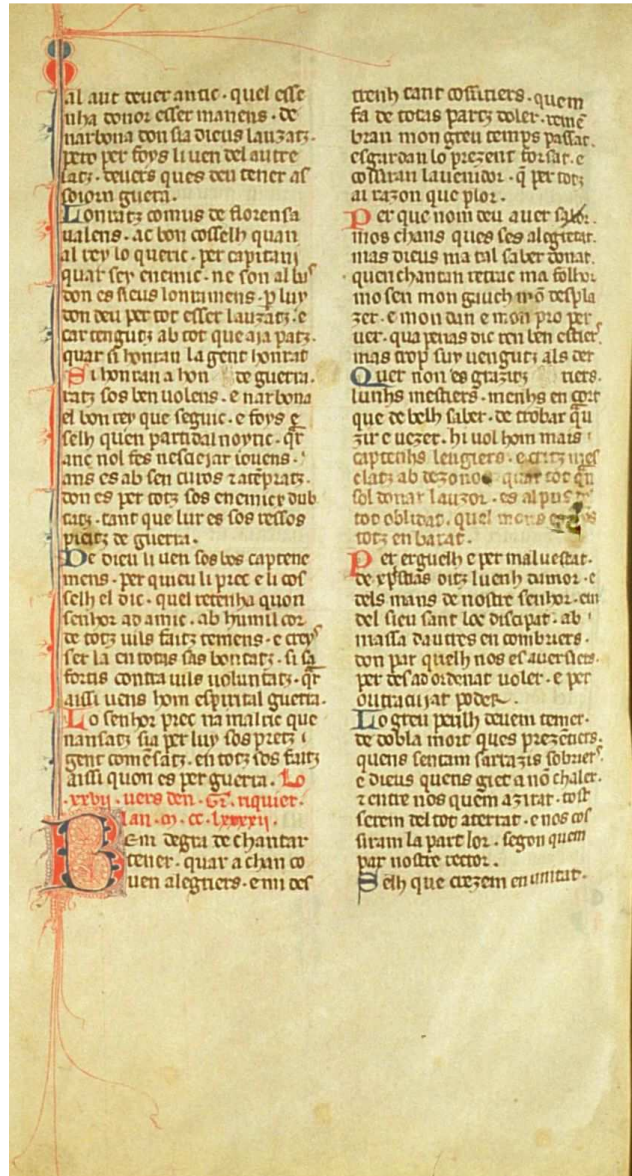 al aut deuer antic · quel esse
nha donor esser manens · de
narbona don sia dieus lauzatz ·
pero per foys li uen del autre
latz · deuers ques deu tener as
soiorn guerra ·
Lonratz comus de florensa
ualens · ac bon cosselh quan
al rey lo queric · per capitani
quar sey enemic · ne son al bus
don es sieus lonramens · p luy
don deu per tot esser lauzatz · e
car tengutz ab tot que aia patz ·
quar si honran la gent honrat
Si honran a hon de guerra ·
tatz sos ben uolens · e narbona
el bon rey que seguic · e foys e
selh quen partidal noyric · qr
anc nol fes nesciejar iouens ·
ans es ab sen curos r atempratz ·
don es per totz sos enemicx dub
tatz · tant que lur es sos ressos
picitz de guerra ·
De dieu li uen sos bos captene
mens · per quieu li prec e li cos
selh el dic · quel retenha quon
senhor ad amic · ab humil cor
de totz uils faitz temens · e creys
ser la en totas sas bontatz · si sa
fortis contra uils uoluntatz · qr
aissi uens hom espirital guerra ·
Lo senhor prec na malric que
nansatz sia per luy sos pretz i
gent comēsatz · en totz sos faitz
aissi quon es per guerra · Lo
· xxvij · uers den · Gr · riquier ·
lan · m · cc · lxxxxij ·
BEm degra de chantar
tener · quar a chan co
uen alegriers · e mi des
trenh tant cossiriers · quem
fa de totas partz doler · remē
bran mon greu temps passat ·
esgardan lo prezent forsat · e
cossiran lauenidor · q per totz
ai razon que plor ·
Per que nom deu auer sabor ·
mos chans ques ses alegretat ·
mas dieus ma tal saber donat ·
quen chantan retrac ma folhor
mo sen mon gauch mō despla
zer · e mon dan e mon pro per
uer · qua penas dic ren ben estier ·
mas trop suy uengutz als der
Quer non es grazitz riers ·
lunhs mestiers · menhs en cort
que de belh saber · de trobar qu
zir e uezer · hi uol hom mais i
captenhs leugiers · e critz mes
clatz ab dezonor quar tot qu
sol donar lauzor · es al pus
tot oblidat · quel mons
totz en barat ·
Per erguelh e per maluestat ·
de xpistias oitz luenh damor · e
dels mans de nostre senhor · em
del sieu sant loc discipat · ab i
massa dautres en combriers ·
don par quelh nos es auersiers ·
per dezad ordenat uoler · e per
outracujat poder ·
Lo greu perilh deuem temer ·
de dobla mort ques prezentiers ·
quens sentam sarrazis sobriers ·
e dieus quens giet a nō chaler ·
r entre nos quem azirat · tost
serem del tot aterrat · e nos cos
siram la part lor · segon quem
par nostre rector ·
Selh que crezem en unitat ·